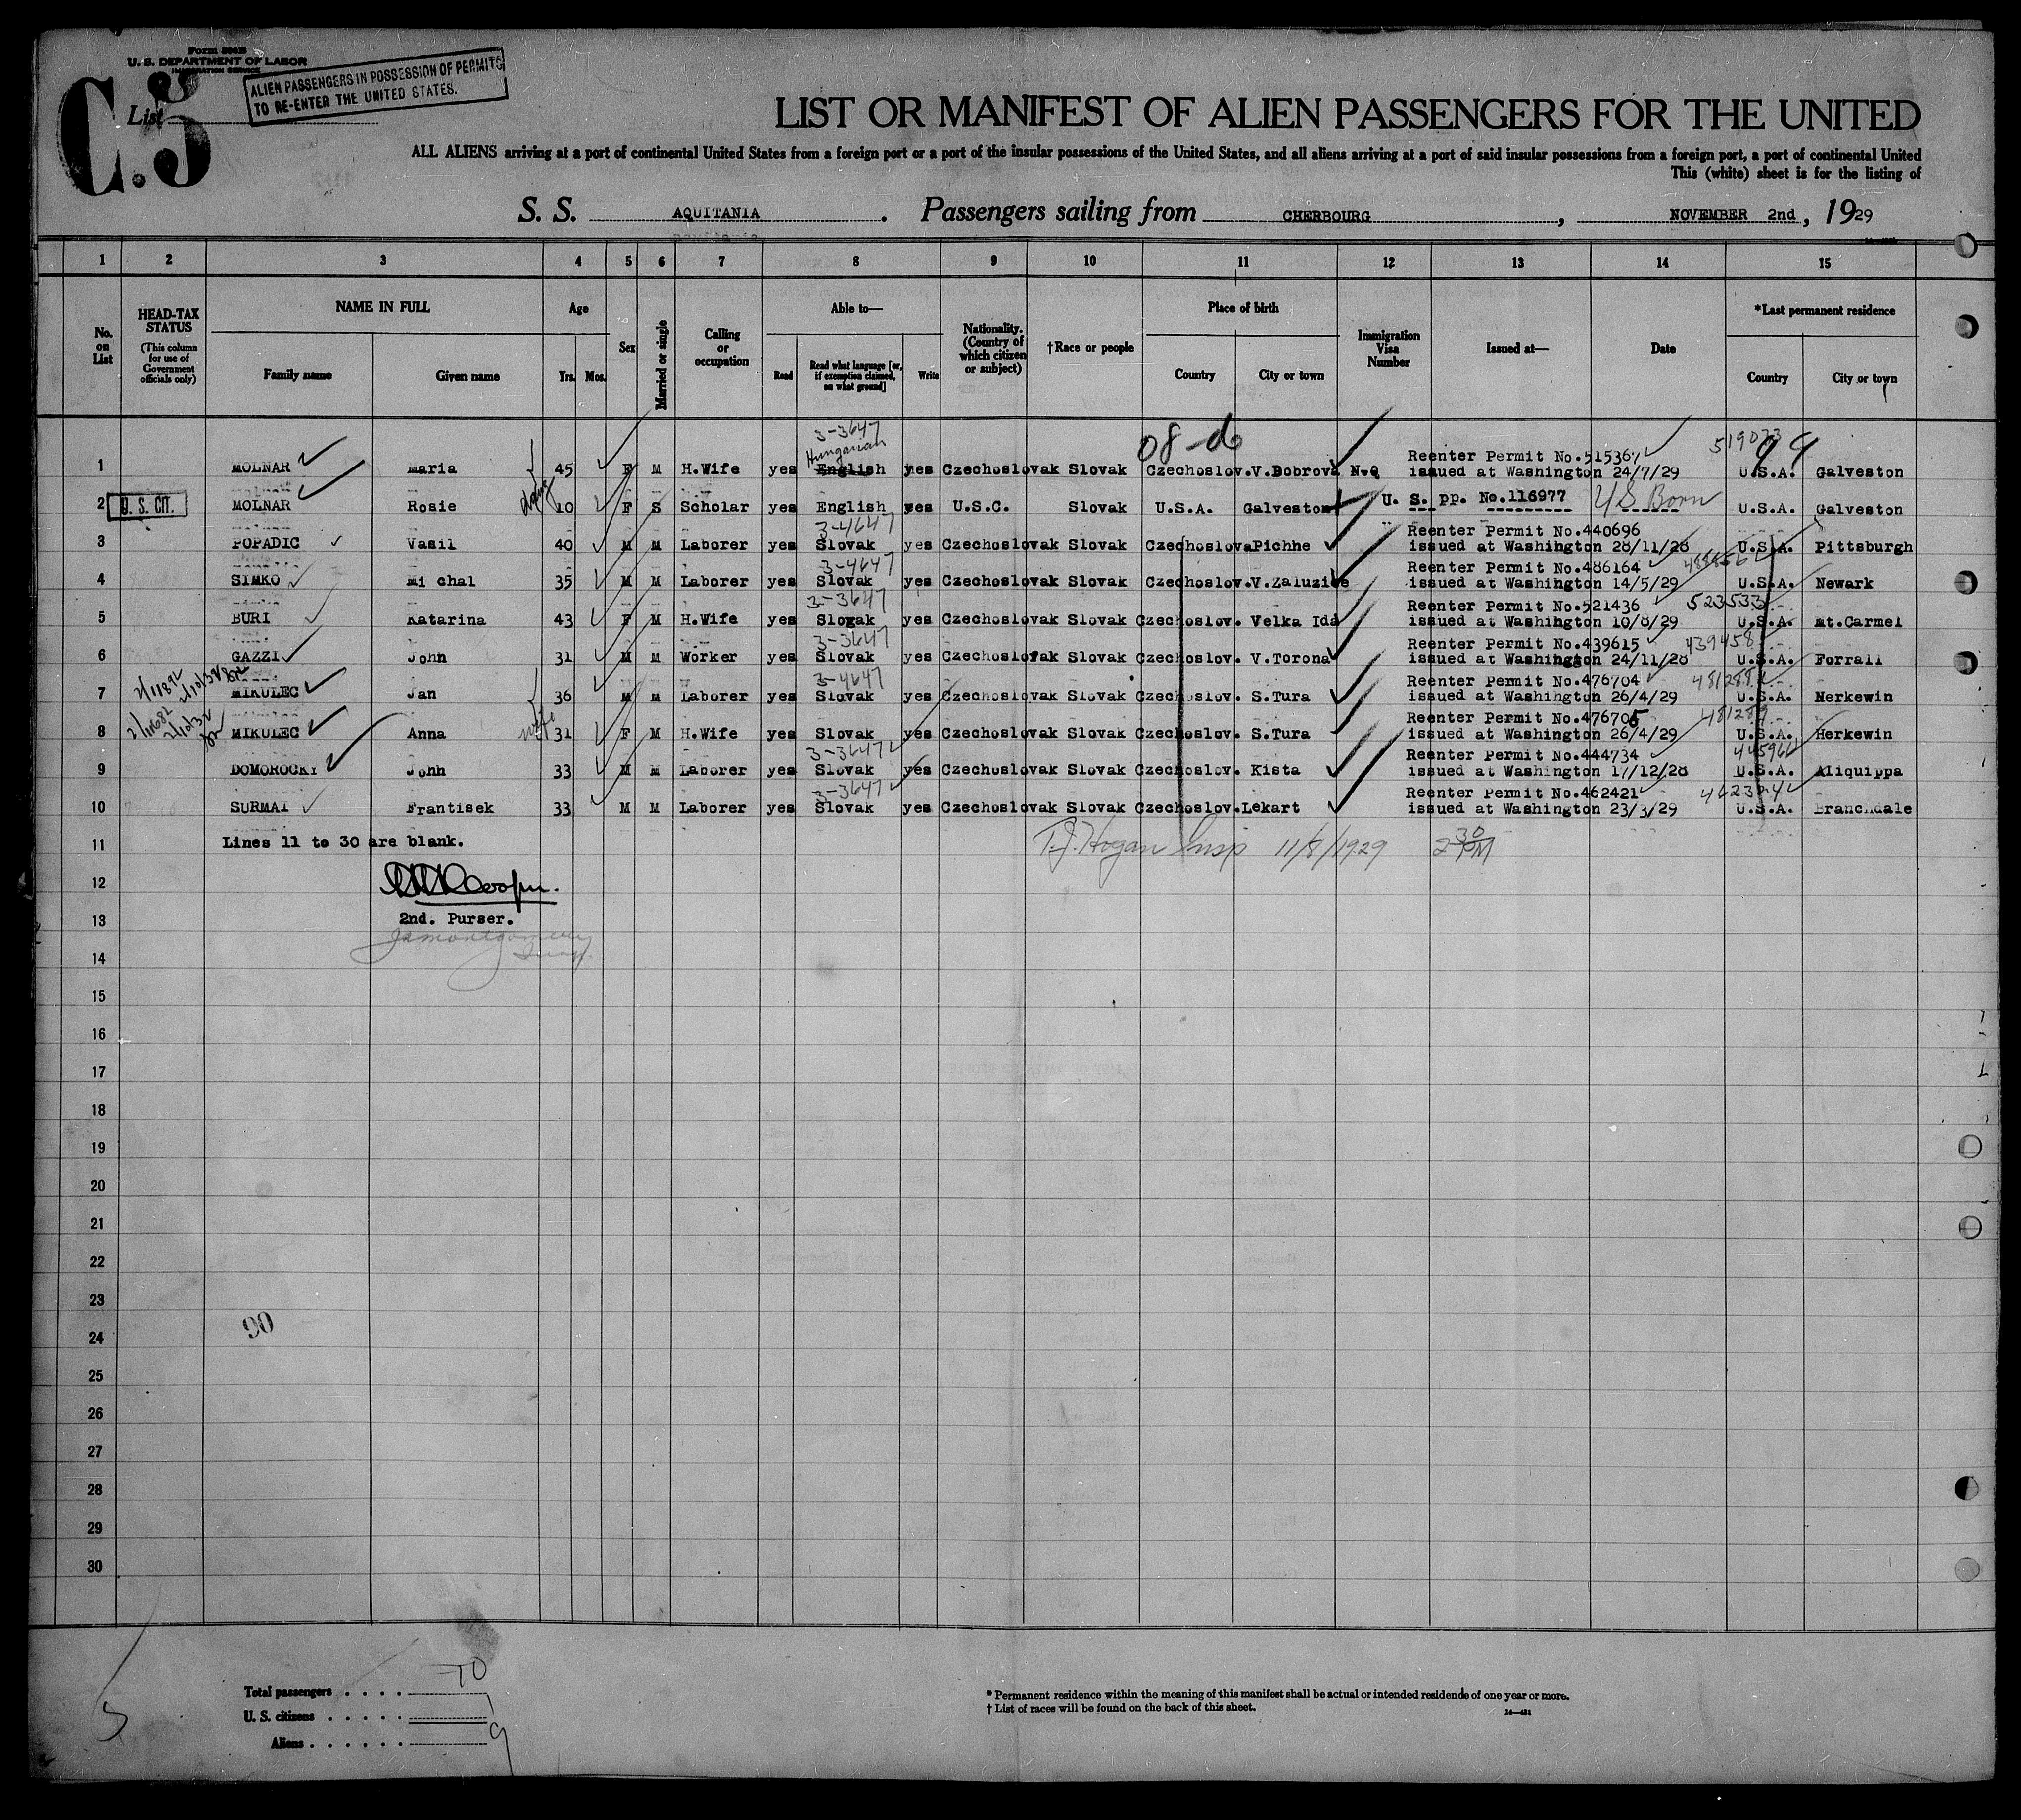 Form 500B
U. S. DEPARTMENT OF LABOR
IMMIGRATION SERVICE
C.5
List
ALIEN PASSENGERS IN POSSESSION OF PERMITS
TO RE-ENTER THE UNITED STATES.
LIST OR MANIFEST OF ALIEN PASSENGERS FOR THE UNITED
ALL ALIENS arriving at a port of continental United States from a foreign port or a port of the insular possessions of the United States, and all aliens arriving at a port of said insular possessions from a foreign port, a port of continental United
This (white) sheet is for the listing of
S. S. AQUITANIA . Passengers sailing from CHERBOURG , NOVEMBER 2nd , 1929
1 2 3 4 5 6 7 8 9 10 11 12 13 14 15
No. on List
HEAD-TAX STATUS
(This column for use of Government officials only)
NAME IN FULL
Family name Given name
Age
Yrs. Mos.
Sex
Married or single
Calling or occupation
Able to—
Read Read what language [or, if exemption claimed, on what ground] Write
Nationality. (Country of which citizen or subject)
†Race or people
Place of birth
Country City or town
Immigration Visa Number
Issued at—
Date
*Last permanent residence
Country City or town
3-3647 08-d 519023 99
Hungarian Reenter Permit No.515367
1 MOLNAR Maria 45 F M H.Wife yes English yes Czechoslovak Slovak Czechoslov. V.Dobrova N.Q issued at Washington 24/7/29 U.S.A. Galveston
2 U. S. CIT. MOLNAR Rosie 10 F S Scholar yes English yes U.S.C. Slovak U.S.A. Galveston U. S. pp. No.116977 US Born U.S.A. Galveston
3-4647 Reenter Permit No.440696
3 POPADIC Vasil 40 M M Laborer yes Slovak yes Czechoslovak Slovak Czechoslova Pichne issued at Washington 28/11/28 U.S.A. Pittsburgh
3-4647 Reenter Permit No.486164
4 SIMKO Michal 35 M M Laborer yes Slovak yes Czechoslovak Slovak Czechoslov. V.Zaluzice issued at Washington 14/5/29 U.S.A. Newark
3-3647 Reenter Permit No.521436 523533
5 BURI Katarina 43 F M H.Wife yes Slovak yes Czechoslovak Slovak Czechoslov. Velka Ida issued at Washington 10/8/29 U.S.A. Mt.Carmel
3-3647 Reenter Permit No.439615 439458
6 GAZZI John 31 M M Worker yes Slovak yes Czechoslovak Slovak Czechoslov. V.Torona issued at Washington 24/11/28 U.S.A. Forrall
3-4647 Reenter Permit No.476704 481288
7 MIKULEC Jan 36 M M Laborer yes Slovak yes Czechoslovak Slovak Czechoslov. S.Tura issued at Washington 26/4/29 U.S.A. Nerkewin
Reenter Permit No.476705 481289
8 MIKULEC Anna wife 31 F M H.Wife yes Slovak yes Czechoslovak Slovak Czechoslov. S.Tura issued at Washington 26/4/29 U.S.A. Herkewin
3-3647 Reenter Permit No.444734 445966
9 DOMOROCKY John 33 M M Laborer yes Slovak yes Czechoslovak Slovak Czechoslov. Kista issued at Washington 17/12/28 U.S.A. Aliquippa
3-3647 Reenter Permit No.462421
10 SURMAI Frantisek 33 M M Laborer yes Slovak yes Czechoslovak Slovak Czechoslov. Lekart issued at Washington 23/3/29 U.S.A. Branchdale
11 Lines 11 to 30 are blank. T.J. Hogan Insp 11/8/1929 2 30 PM
12
13 2nd. Purser.
J Montgomery
14
15
16
17
18
19
20
21
22
23
90
24
25
26
27
28
29
30
Total passengers . . . . 10
U. S. citizens . . . . . 1
Aliens . . . . . . 9
* Permanent residence within the meaning of this manifest shall be actual or intended residence of one year or more.
† List of races will be found on the back of this sheet.